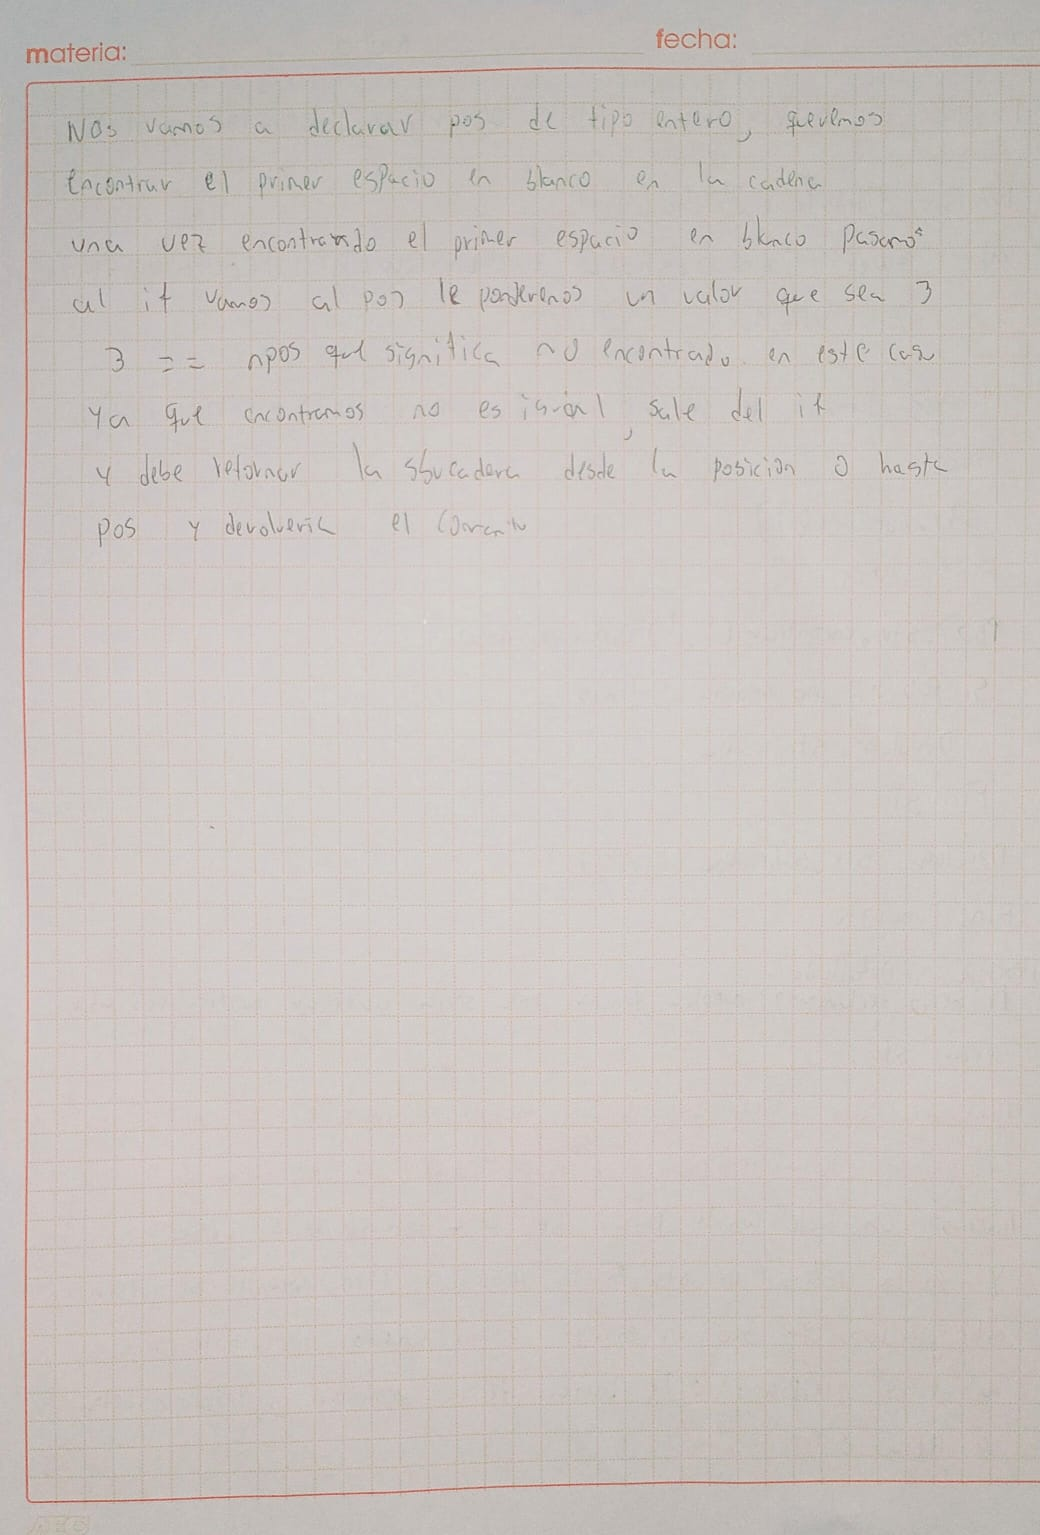 materia:
fecha:
Nos vamos a declarar pos de tipo entero, queremos
encontrar el primer espacio en blanco en la cadena
una vez encontrando el primer espacio en blanco pasamos
al if vamos al pos le pondremos un valor que sea 3
3 == npos que significa no encontrado en este caso
Ya que encontramos no es igual, sale del if
y debe retornar la sbucadena desde la posicion 0 hasta
pos y devolveria el